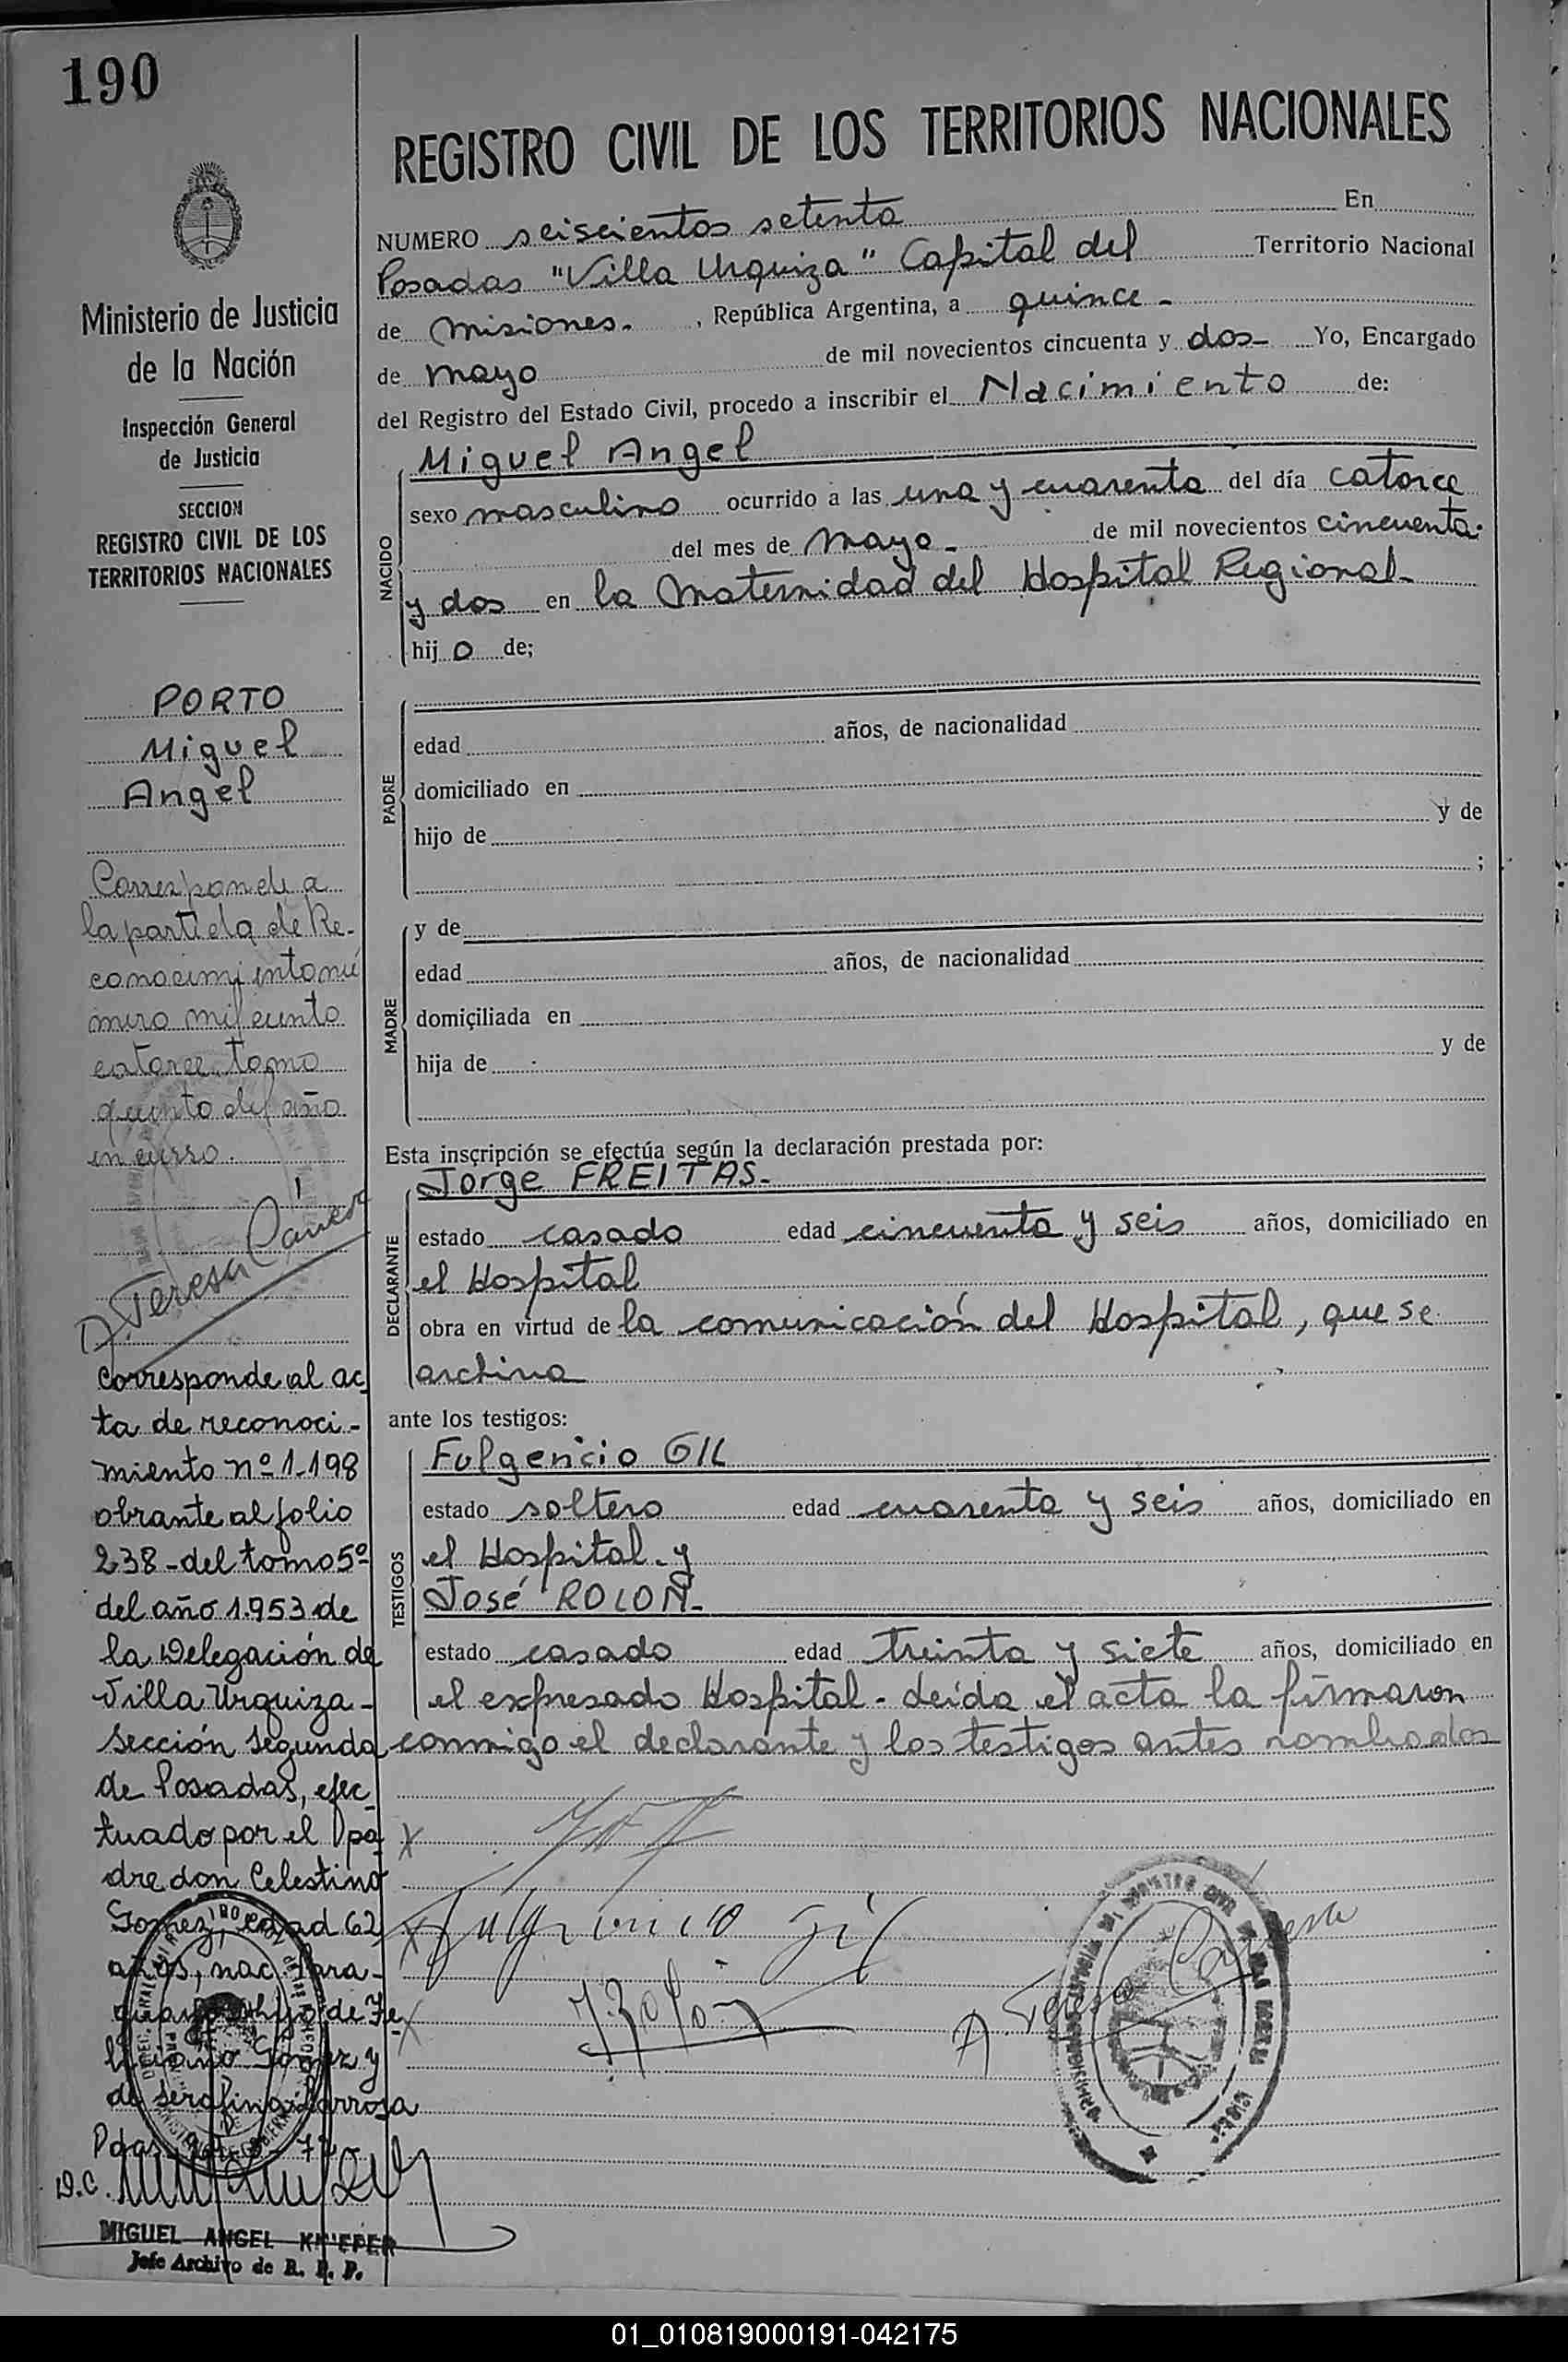 190
Ministerio de Justicia
de la Nación
Inspección General
de Justicia
SECCION
REGISTRO CIVIL DE LOS
TERRITORIOS NACIONALES
PORTO
Miguel
Angel
Corresponde a
la partida de Re-
conocimiento nú
mero mil ciento
catorce tomo
quinto del año
en curso.
A. Teresa
Corresponde al ac
ta de reconoci-
miento nº 1-198
obrante al folio
238-del tomo 5º
del año 1.953 de
la Delegación de
Villa Urquiza-
sección segunda
de Posadas, efec
tuado por el pa
dre don Celestino
Gomez, edad 62
años, nac. para-
guayo hijo de Fe
liciano Gomez y
de Serafina Larrosa
Pdas
D.C.
MIGUEL ANGEL KNIEPER
Jefe Archivo de R. P. P.
REGISTRO CIVIL DE LOS TERRITORIOS NACIONALES
NUMERO seiscientos setenta En
Posadas "Villa Urquiza" Capital del Territorio Nacional
de Misiones. , República Argentina, a quince -
de mayo de mil novecientos cincuenta y dos- Yo, Encargado
del Registro del Estado Civil, procedo a inscribir el Nacimiento de:
NACIDO
Miguel Angel
sexo masculino ocurrido a las una y cuarenta del día catorce
del mes de mayo - de mil novecientos cincuenta
y dos en la Maternidad del Hospital Regional-
hij o de;
PADRE
edad años, de nacionalidad
domiciliado en
hijo de y de
;
MADRE
y de
edad años, de nacionalidad
domiciliada en
hija de y de
Esta inscripción se efectúa según la declaración prestada por:
DECLARANTE
Jorge FREITAS-
estado casado edad cincuenta y seis años, domiciliado en
el Hospital
obra en virtud de la comunicación del Hospital, que se
archiva
ante los testigos:
TESTIGOS
Fulgencio GIL
estado soltero edad cuarenta y seis años, domiciliado en
el Hospital. y
José ROLON-
estado casado edad treinta y siete años, domiciliado en
el expresado Hospital - Leída el acta la firmaron
conmigo el declarante y los testigos antes nombrados
X
X Fulgencio Gil
X J. Rolon
A. Teresa
01_010819000191-042175